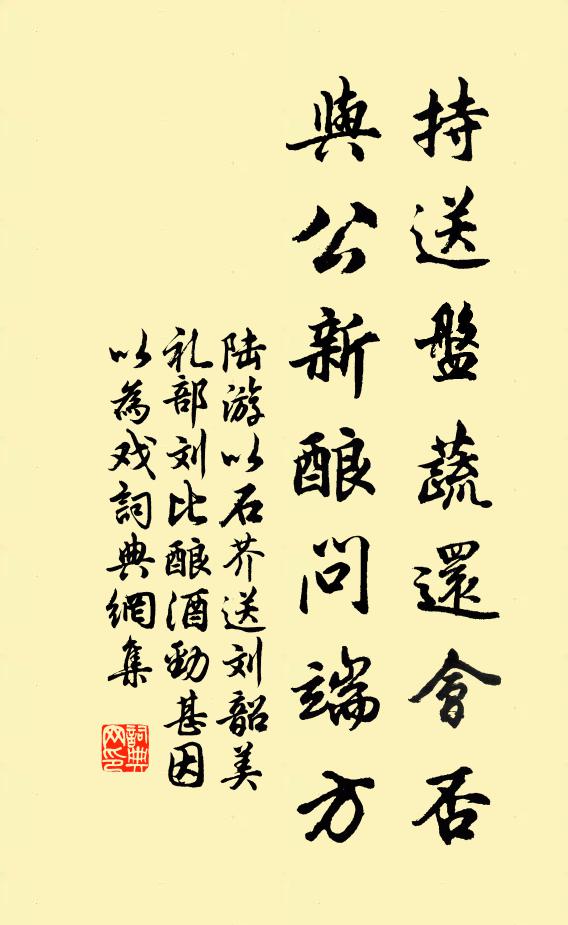 持送盤蔬還會否
與公新酿問端方
陆游以石芥送刘韶美
礼部刘比酿酒勁甚因
以為戏詞典網集
詞典网印